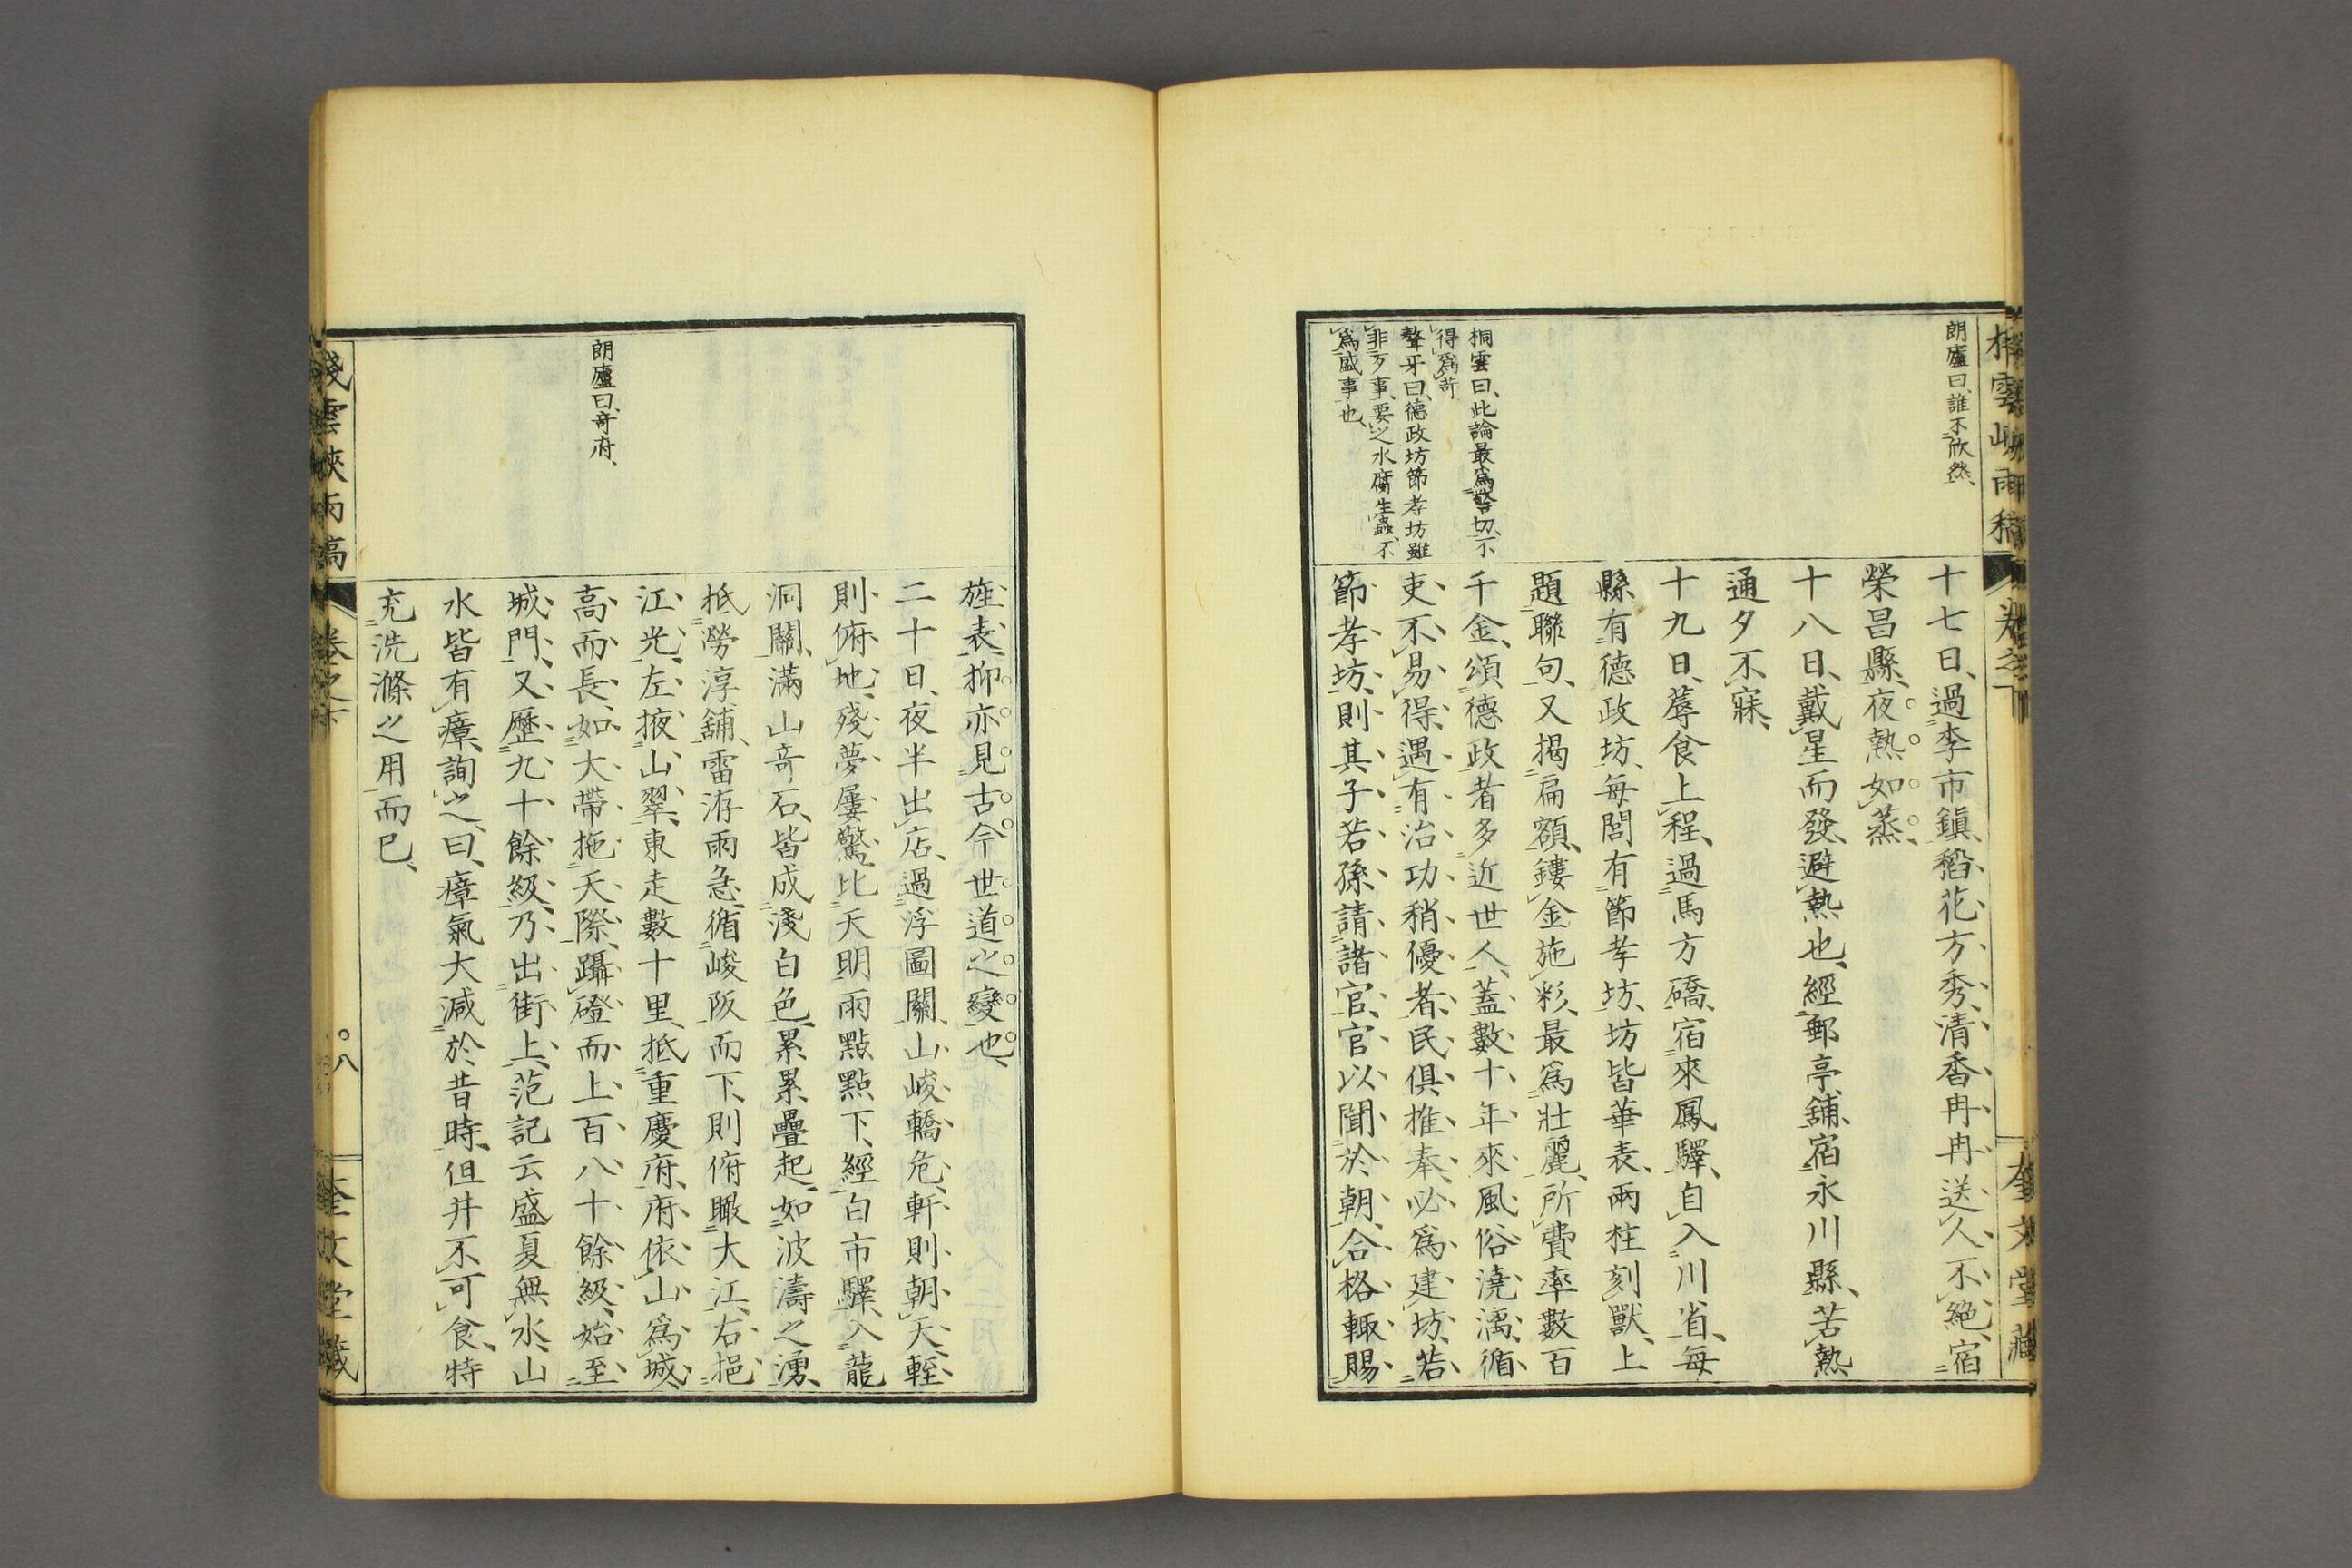 朗廬曰、誰不欣然、
桐雲曰、此論最爲警切、不
得爲苛
聱牙曰、德政坊節孝坊雖
非歹事、要之水腐生蟲、不
爲盛事也、
十七日、過李市鎮、稻花方秀、清香冉冉送人不絶、宿
榮昌縣、夜熱如蒸、
十八日、戴星而發、避熱也、經郵亭舖、宿永川縣、苦熱
通夕不寐、
十九日、蓐食上程、過馬方礄、宿來鳳驛、自入川省、每
縣有德政坊、每閭有節孝坊、坊皆華表、兩柱刻獸、上
題聯句、又揭扁額、鏤金施彩、最爲壯麗、所費率數百
千金、頌德政者多近世人、蓋數十年來風俗澆漓、循
吏不易得、遇有治功稍優者、民俱推奉必爲建坊、若
節孝坊、則其子若孫請諸官、官以聞於朝、合格輒賜
棧雲峽雨稿
卷之下
奎文堂藏
朗廬曰、奇府、
旌表、抑亦見古今世道之變也、
二十日、夜半出店、過浮圖關、山峻轎危、軒則朝天、輊
則俯地、殘夢屢驚、比天明雨點點下、經白市驛、入龍
洞關、滿山奇石、皆成淺白色、累累疊起、如波濤之湧、
抵澇淳舖、雷洊雨急、循峻阪而下、則俯瞰大江、右挹
江光、左掖山翠、東走數十里、抵重慶府、府依山爲城、
高而長、如大帶拖天際、躡磴而上、百八十餘級、始至
城門、又歷九十餘級、乃出街上、范記云盛夏無水、山
水皆有瘴、詢之、曰、瘴氣大減於昔時、但井不可食、特
充洗滌之用而已、
棧雲峽雨稿
卷之下
八
奎文堂藏